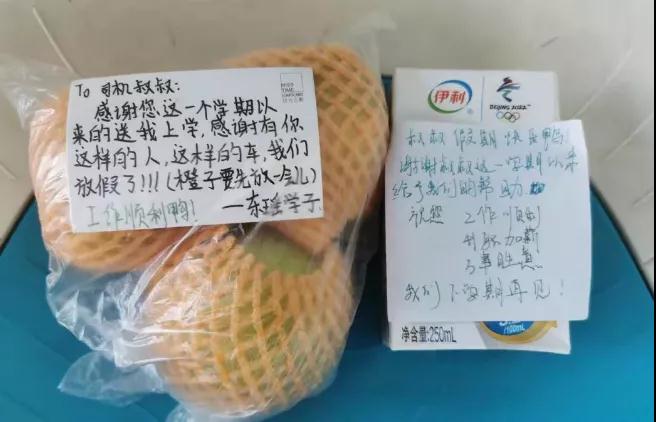 To 司机叔叔:
感谢您这一个学期以
来的送我上学,感谢有你
这样的人,这样的车,我们
放假了!!!(橙子要先放一会儿)
工作顺利鸭!
伊利
BEIJING 2022
叔叔 假期快乐鸭!
谢谢叔叔这一学期以来
给予我们的帮助
祝您 工作顺利
升职加薪
万事胜意
我们下学期再见!
净含量:250mL
/100mL